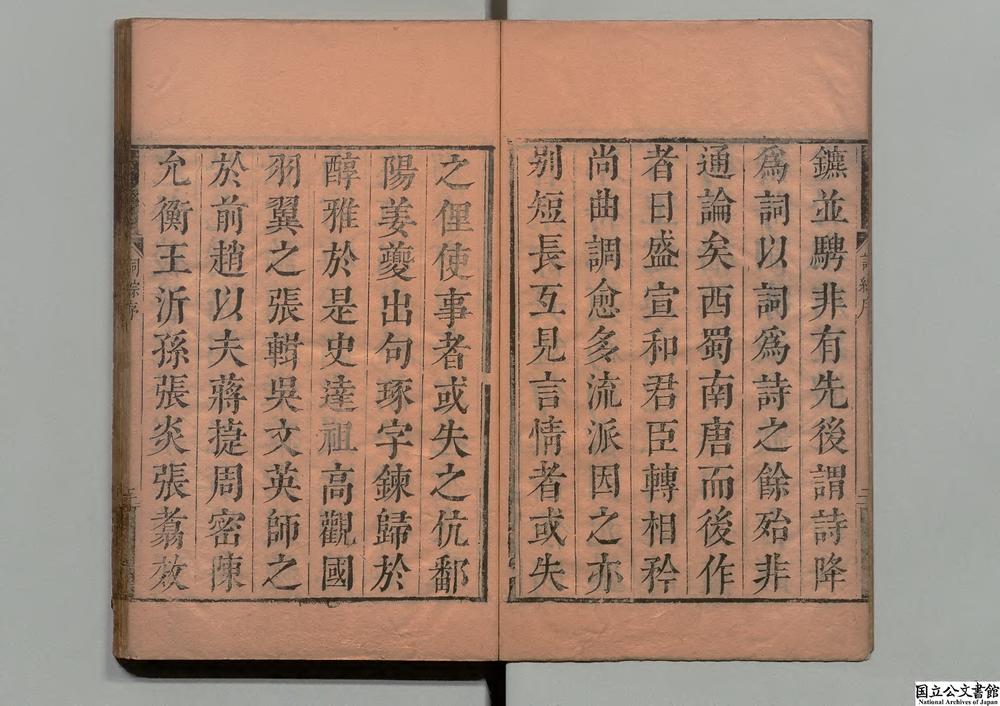 鑣並騁非有先後謂詩降
爲詞以詞爲詩之餘殆非
通論矣西蜀南唐而後作
者日盛宣和君臣轉相矜
尚曲調愈多流派因之亦
别短長互見言情者或失
之俚使事者或失之伉鄱
陽姜夔出句琢字鍊歸於
醇雅於是史達祖高觀國
羽翼之張輯吳文英師之
於前趙以夫蔣捷周密陳
允衡王沂孫張炎張翥效
詞綜序
国立公文書館
National Archives of Japan